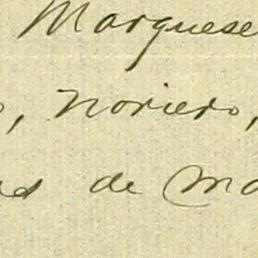 Marquese
, Noriero,
de Ma